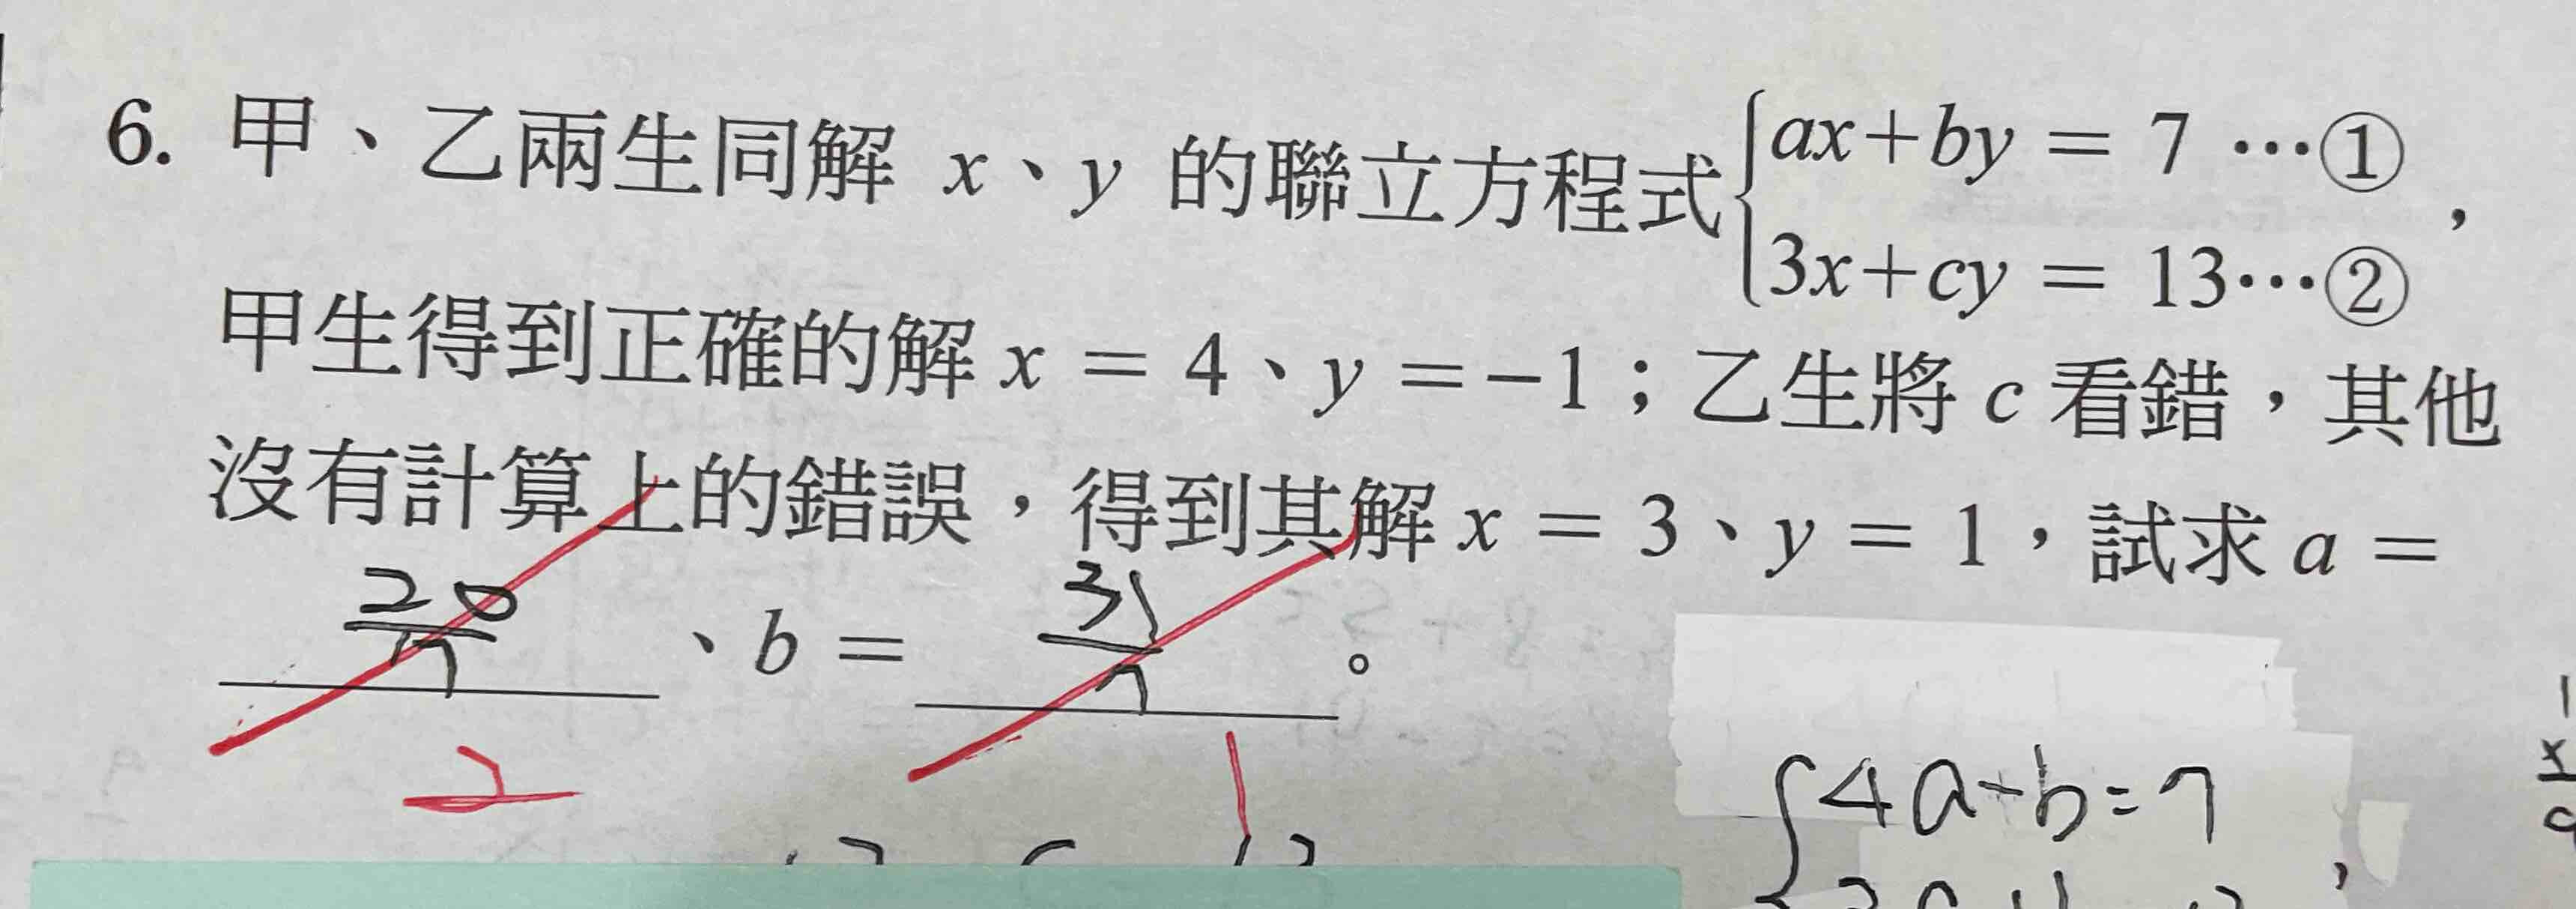 6. 甲、乙兩生同解 x、y 的聯立方程式{ax+by = 7 …①
3x+cy = 13…② ,
甲生得到正確的解 x = 4、y =−1；乙生將 c 看錯，其他
沒有計算上的錯誤，得到其解 x = 3、y = 1，試求 a =
20/7 、b = 31/7 。
2 1
{4a-b=7